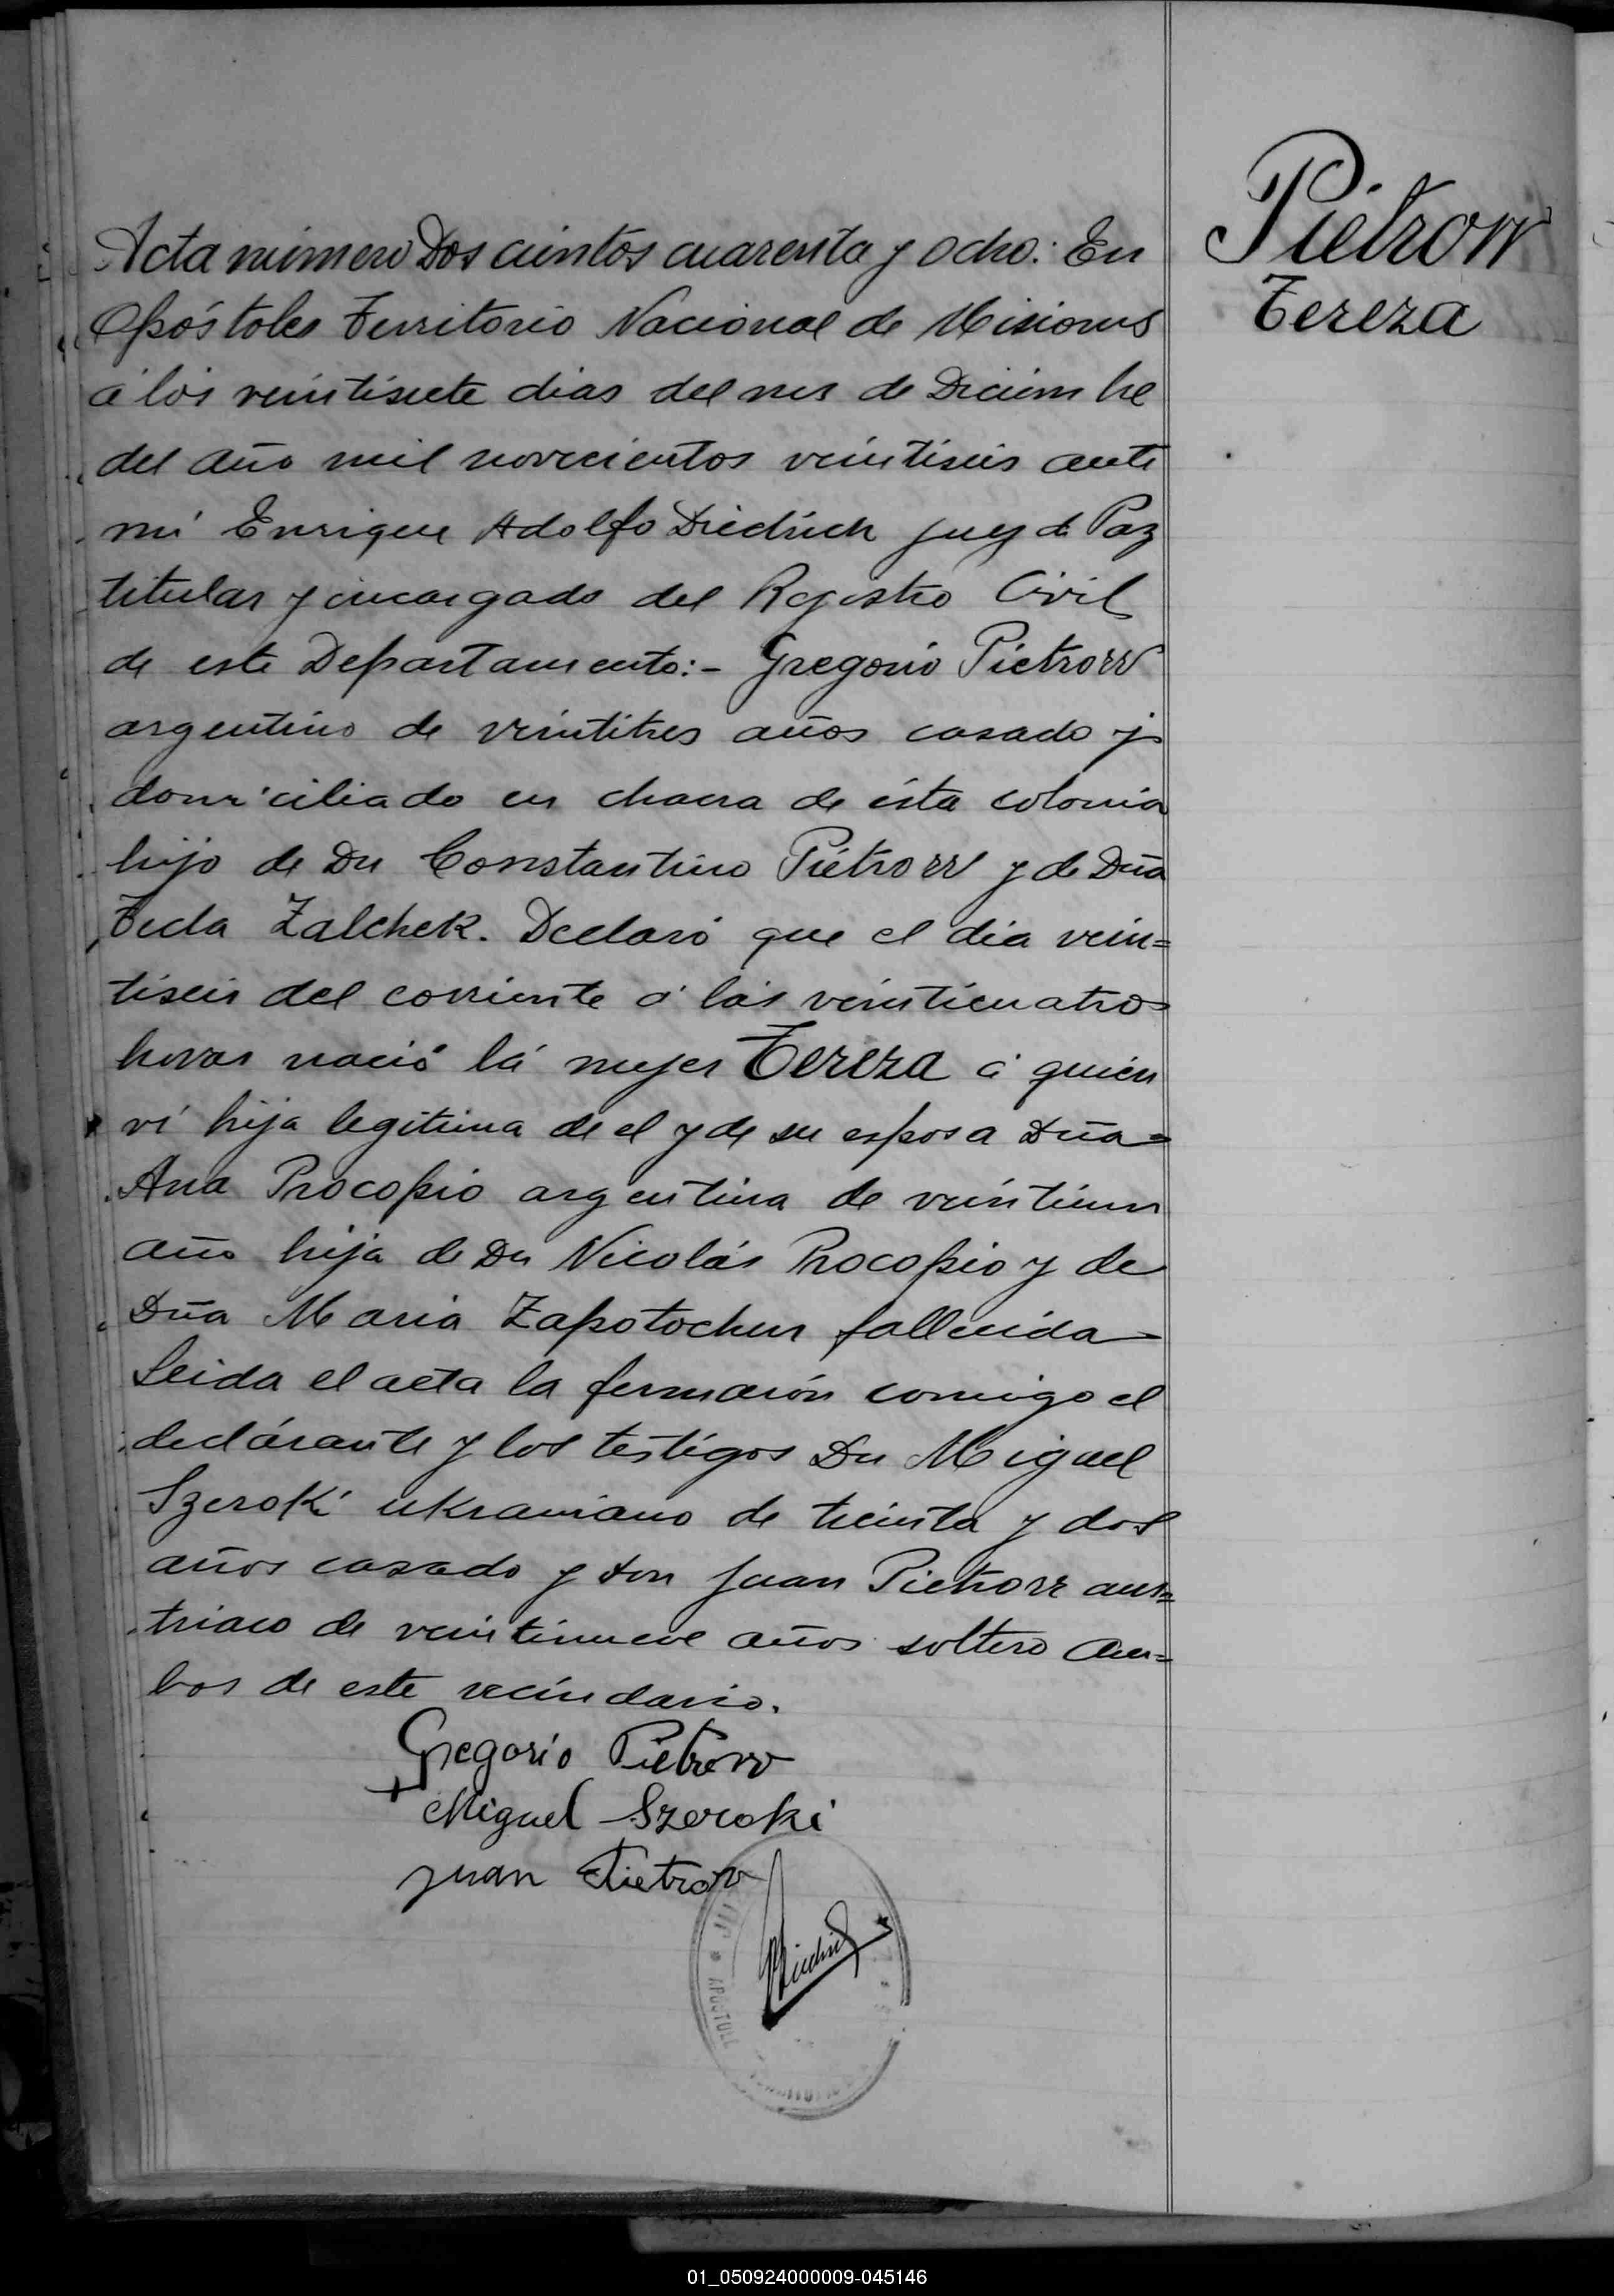 Pietrow
Tereza
Acta número Dos cientos cuarenta y ocho: En
Apóstoles Territorio Nacional de Misiones
á los veintisiete dias del mes de Diciembre
del año mil novecientos veintiseis ante
mi Enrique Adolfo Diedrich Juez de Paz
titular y encargado del Registro Civil
de este Departamento:- Gregorio Pietrow
argentino de veintitres años casado y
domiciliado en chacra de ésta colonia
hijo de Dn Constantino Pietrow y de Dña
Tecla Zalchek. Declaró que el dia vein=
tiseis del corriente á las veinticuatro
horas nació la mujer Tereza á quien
vi hija legitima de el y de su esposa Dña
Ana Procopio argentina de veintiun
año hija de Dn Nicolás Procopio y de
Dña Maria Zapotochen fallecida
Leida el acta la firmarón conmigo el
declárante y los testigos Dn Miguel
Szeroki ukraniano de treinta y dos
años casado y don Juan Pietrow aus=
triaco de veintinueve años soltero am=
bos de este vecindario.
Gregorio Pietrow
+ Miguel Szeroki
Juan Pietrow
Diedrich
APOSTOLE
01_050924000009-045146